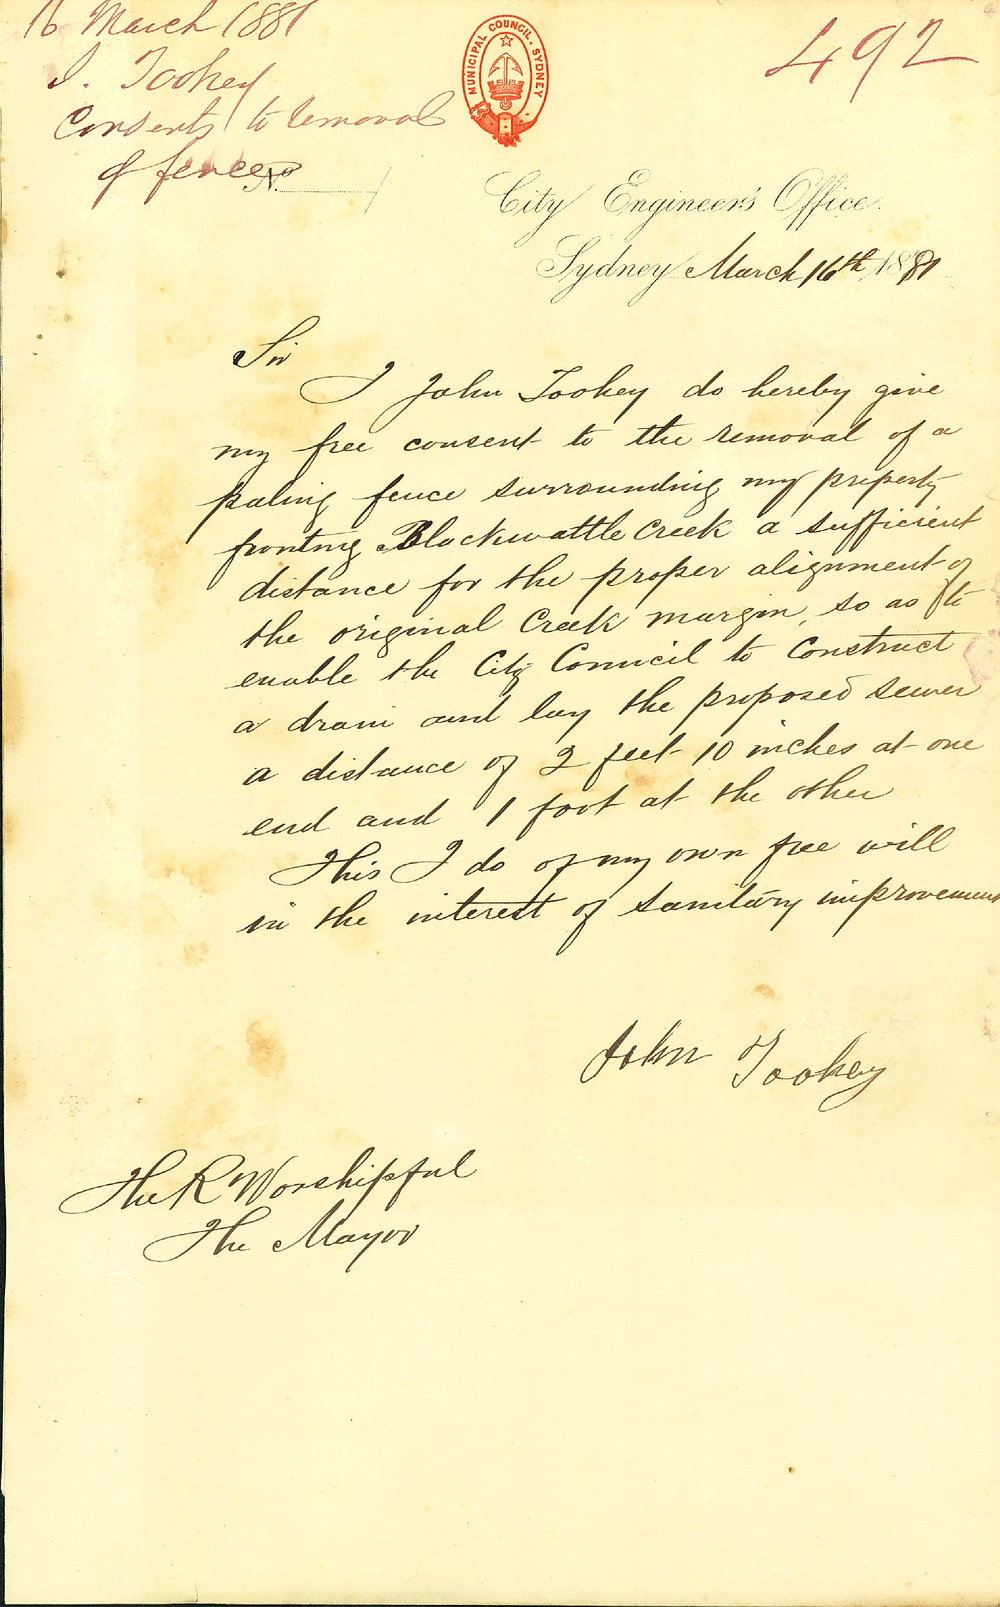 16 March 1881
J. Tookey
Consents to removal
of fence
No
492
MUNICIPAL COUNCIL, SYDNEY
City Engineer's Office.
Sydney March 16th 1881
Sir
I John Tookey do hereby give
my free consent to the removal of a
paling fence surrounding my property
fronting Blackwattle Creek a sufficient
distance for the proper alignment of
the original Creek margin, so as to
enable the City Council to Construct
a drain and lay the proposed sewer
a distance of 2 feet 10 inches at one
end and 1 foot at the other
This I do of my own free will
in the interest of sanitary improvement
John Tookey
The R Worshipful
The Mayor